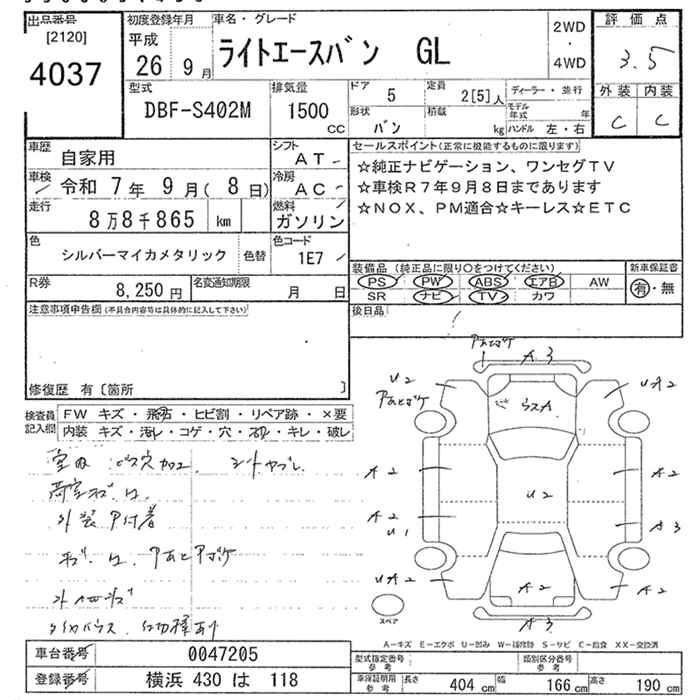 出品番号
[2120]
4037
初度登録年月
平成
26 9月
車名・グレード
ライトエースバン GL
2WD
・
4WD
評価点
3.5
外装 内装
C C
型式
DBF-S402M
排気量
1500
CC
ドア
5
定員
2[5]人
ディーラー・並行
形状
バン
積載
kg
モデル
年式
年
ハンドル 左・右
車歴
自家用
シフト
AT
車検
令和 7年 9月( 8日)
冷房
AC
走行
8万8千865 km
燃料
ガソリン
色
シルバーマイカメタリック
色替
色コード
1E7
R券
8,250円
名変通知期限
月 日
セールスポイント(正常に機能するものに限ります)
☆純正ナビゲーション、ワンセグTV
☆車検R7年9月8日まであります
☆NOX、PM適合☆キーレス☆ETC
装備品 (純正品に限り〇をつけてください)
PS PW ABS エアB AW
SR ナビ TV カワ
新車保証書
有・無
後日品
注意事項申告欄(不具合内容等は具体的に記入して下さい)
修復歴 有〔箇所 〕
検査員
記入欄
FW キズ・飛石・ヒビ割・リペア跡・×要
内装 キズ・汚レ・コゲ・穴・スレ・キレ・破レ
室内 ビス穴 加工. シートヤブレ.
外装 P付着
A3
U2
UA2
A2
A2
U2
A2
U1
A3
UA2
A2
A2
A3
スペア
A-キズ E-エクボ U-凹み W-補修跡 S-サビ C-腐食 XX-交換済
車台番号
0047205
登録番号
横浜 430 は 118
型式指定番号
参考
類別区分番号
参考
車庫証明用
参考
長さ
404 cm
幅
166 cm
高さ
190 cm